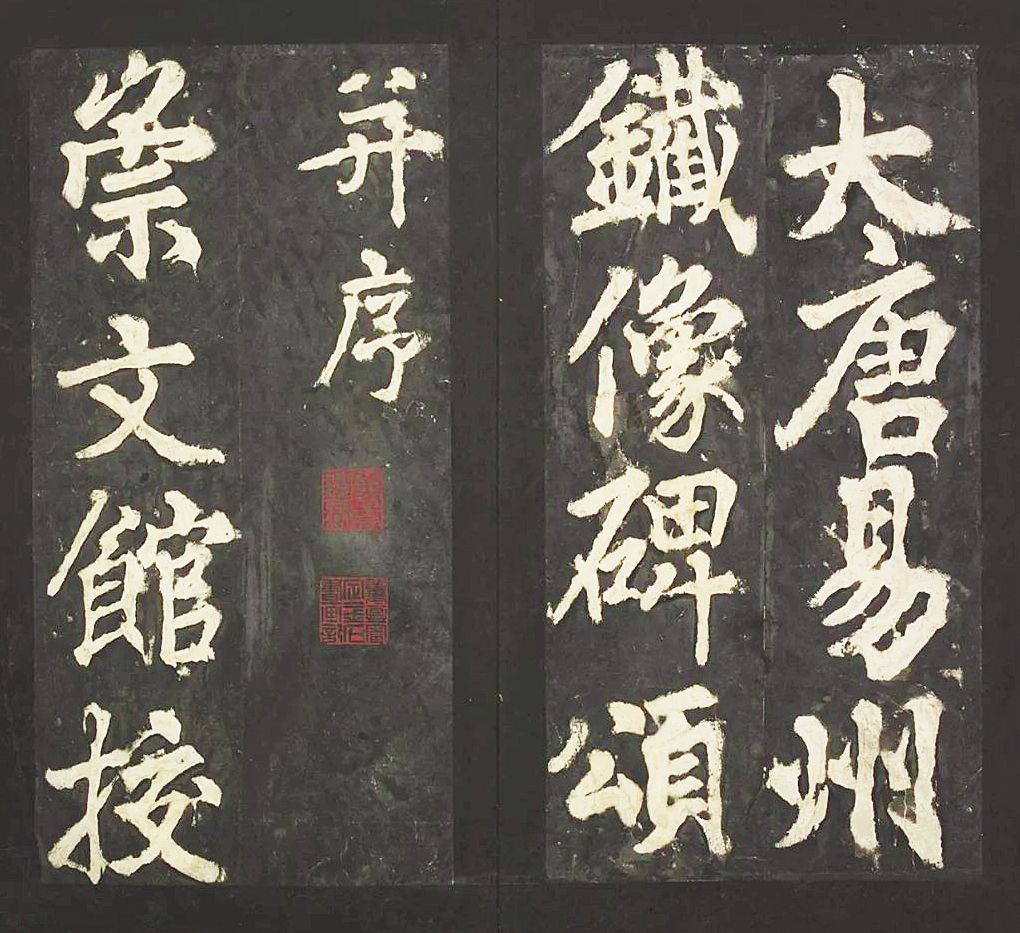 大唐易州
鐵像碑頌
并序
崇文館校